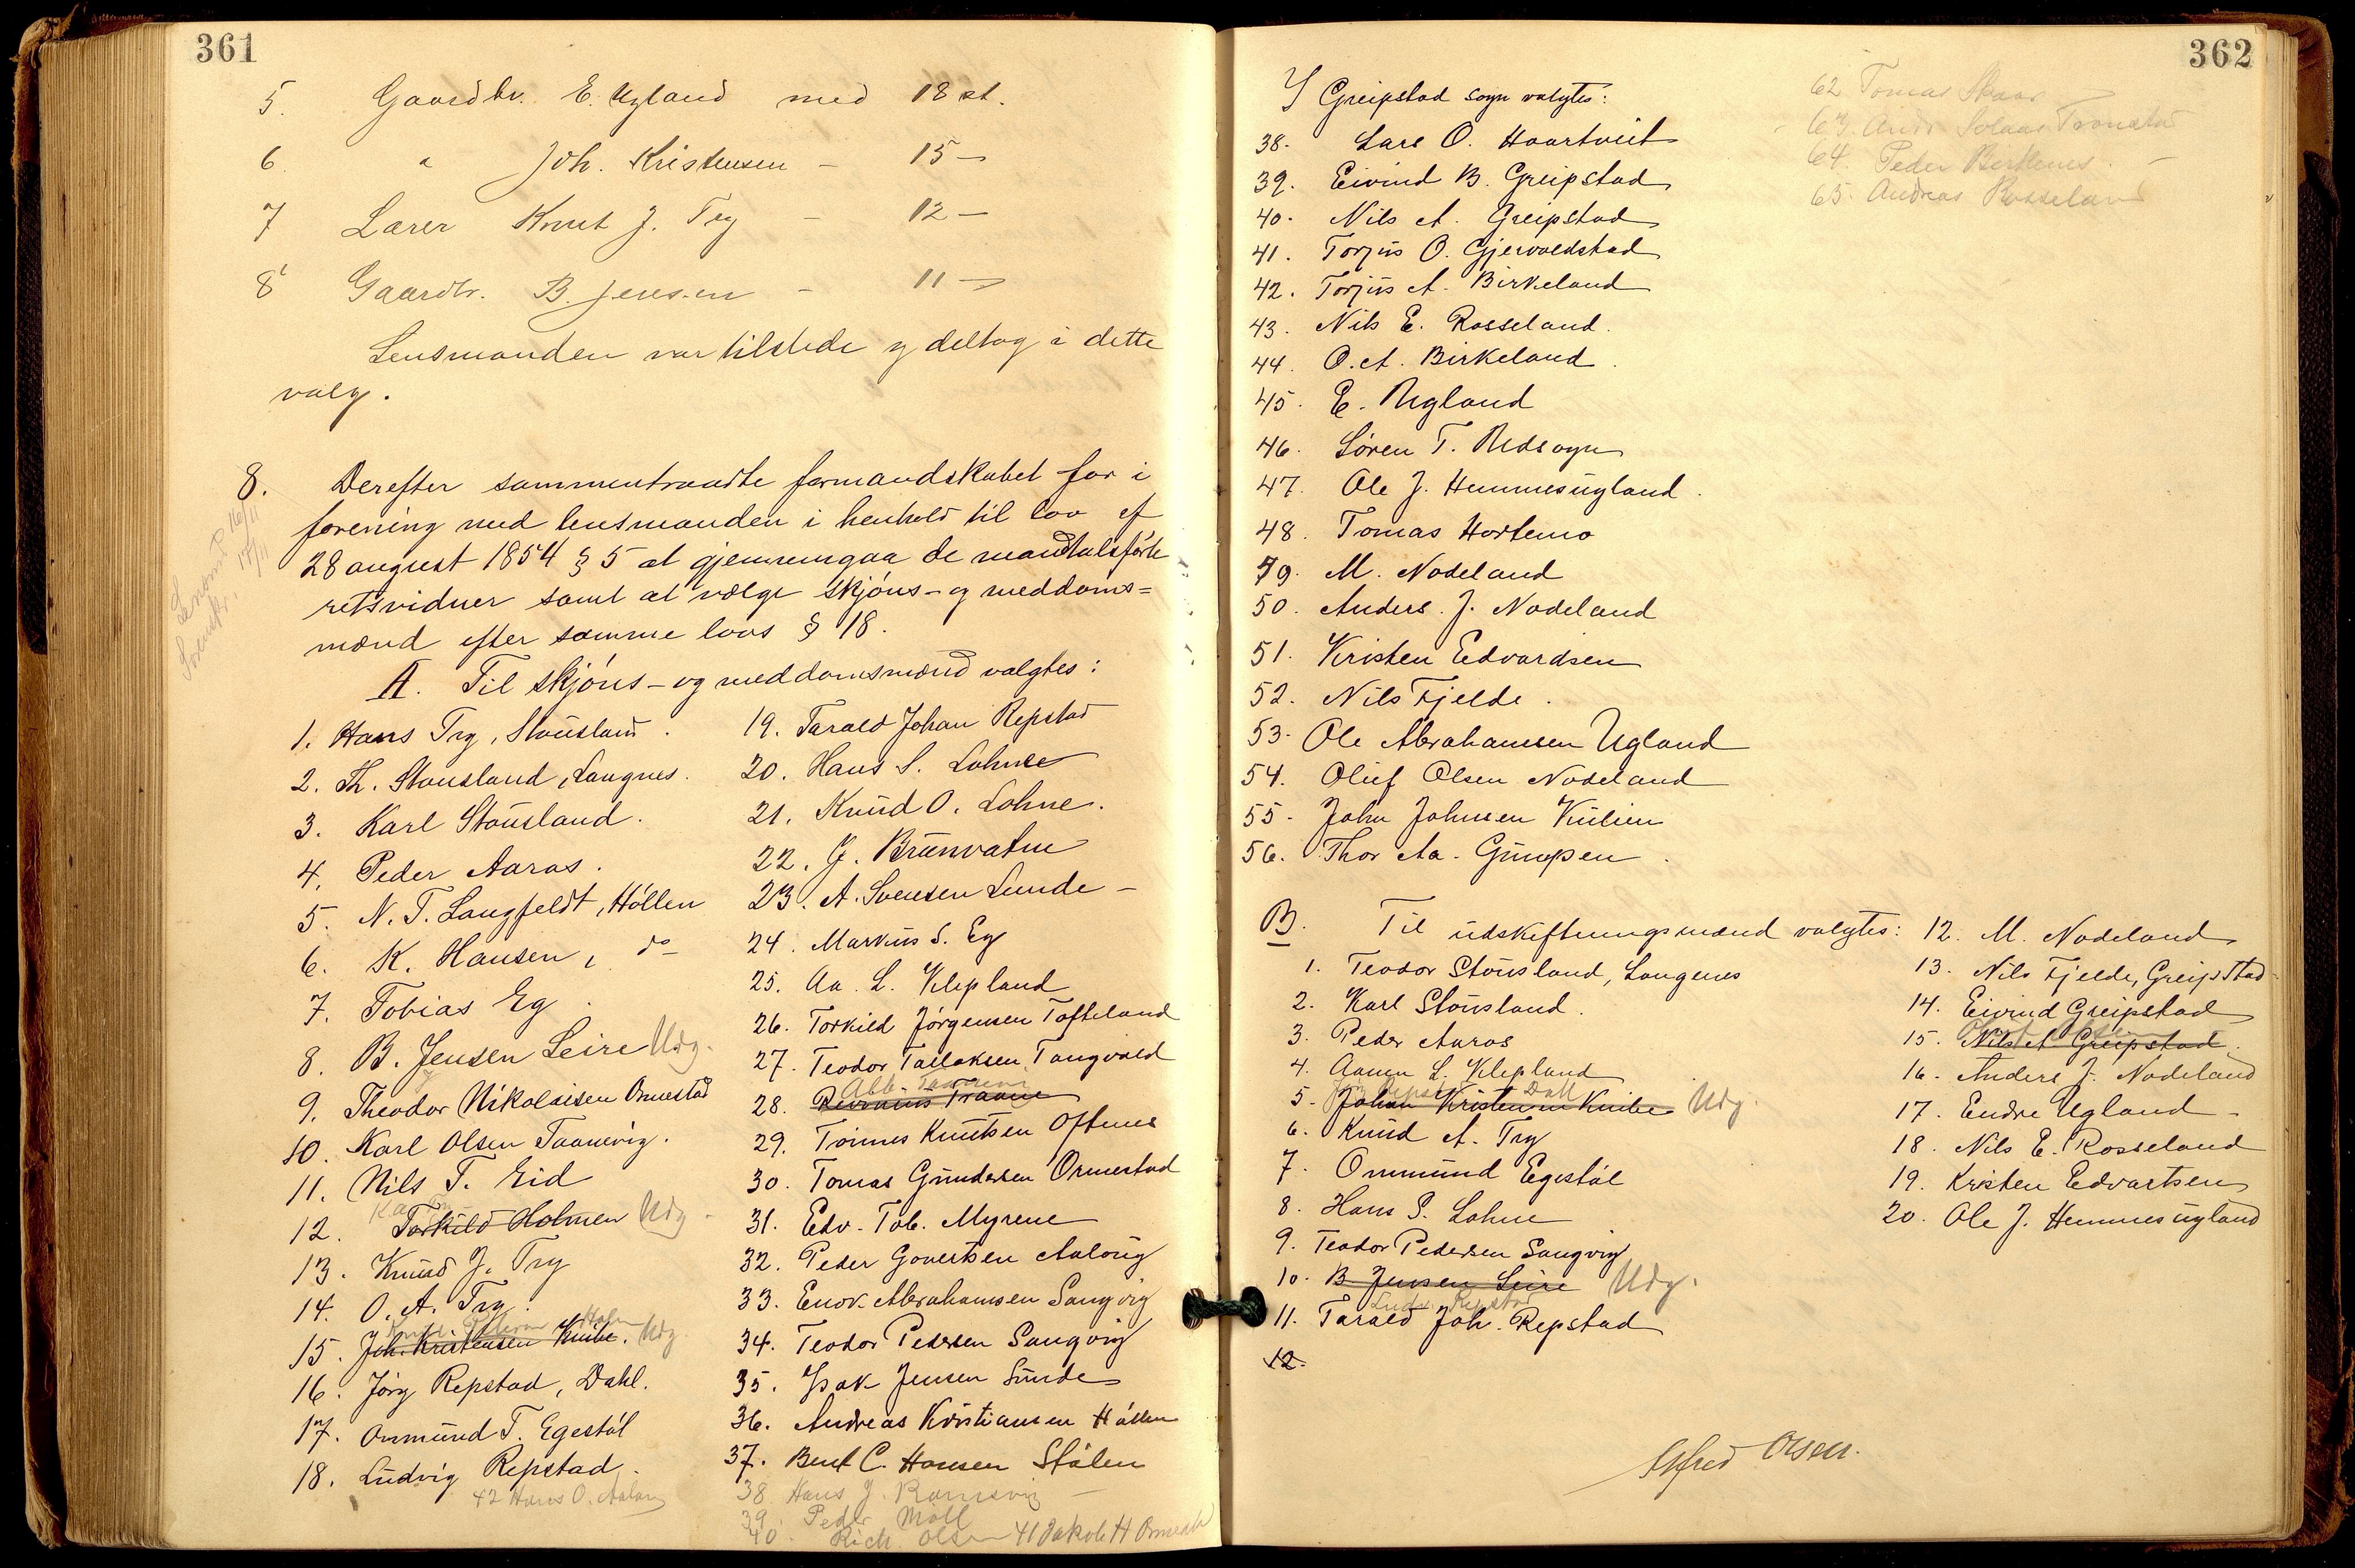 361
5. Gaardbr. E. Ugland med 18 st.
6. " Joh. Kristensen - 15 -
7 Lærer Knut J. Try - 12 -
8 Gaardbr. B. Jensen - 11 -
Lensmanden var tilstede og deltog i dette
valg.
8. Derefter sammentraadte formandskabet for i
forening med lensmanden i henhold til lov af
28 august 1854 § 5 at gjennemgaa de mandtalsførte
retsvidner samt at vælge skjøns- og meddoms=
mænd efter samme lovs § 18.
A. Til skjøns- og meddomsmænd valgtes:
1. Hans Try, Stousland.
2. Th. Stousland, Langnes.
3. Karl Stousland.
4. Peder Aaros.
5. N. T. Langfeldt, Høllen
6. K. Hansen, do
7. Tobias Eg.
8. B. Jensen Leire Udg.
9. Theodor Nikolaisen Ormestad
10. Karl Olsen Taanevig.
11. Nils T. Eid
12. Torkild Holmen Udg.
13. Knud J. Try
14. O. A. Try.
15. Joh. Kristensen Knibe. Udg.
16. Jørg Repstad, Dahl.
17. Ommund T. Egestøl
18. Ludvig Repstad.
42 Hans O. Aalong
19. Tarald Johan Repstad
20. Hans S. Lohne
21. Knud O. Lohne.
22. G. Brunvatne
23. A. Svensen Lunde -
24. Markus S. Eg
25. Aa. L. Klepland
26. Torkild Jørgensen Tofteland
27. Teodor Tallaksen Tangvald
28.
29. Tønnes Knutsen Oftenes
30. Tomas Gundersen Ormestad
31. Edv. Tob. Myrene
32. Peder Govertsen Aalong
33. Enok Abrahamsen Sangvig
34. Teodor Pedersen Sangvig
35. Isak Jensen Lunde
36. Andreas Kristiansen Høllen
37. Bent C. Hansen Stølen
38 Hans J. Romsvig -
39. Peder Moll
40. Rich. Olsen 41 Jakob H Ormestad
362
I Greipstad sogn valgtes:
38. Lars O. Haartveit
39. Eivind B. Greipstad
40. Nils A. Greipstad
41. Torjus O. Gjervoldstad
42. Torjus A. Birkeland
43. Nils E. Rosseland.
44. O. A. Birkeland.
45. E. Ugland
46. Søren T. Udsogn
47. Ole J. Hemmesugland.
48. Tomas Hortemo
49. M. Nodeland
50. Anders J. Nodeland
51. Kristen Edvardsen
52. Nils Fjelde.
53. Ole Abrahamsen Ugland
54. Oluf Olsen Nodeland
55. John Johnsen Kulien
56. Thor Aa. Gumpen.
62 Tomas Skaar
63. Andr Tronstad
64. Peder Birkenes. -
65. Andreas Rosseland
B. Til udskiftningsmænd valgtes:
1. Teodor Stousland, Langenes
2. Karl Stousland.
3. Peder Aaros
4. Aanen L. Klepland
Jørg Repstad Dahl
5. Johan Kristensen Knibe Udg.
6. Knud A. Try
7. Ommund Egestøl
8. Hans S. Lohne
9. Teodor Pedersen Sangvig
10. B Jensen Leire Udg.
Ludv. Repstad
11. Tarald Joh. Repstad
12.
12. M. Nodeland
13. Nils Fjelde, Greipstad
14. Eivind Greipstad
15. Nils A Greipstad.
16. Anders J. Nodeland
17. Endre Ugland -
18. Nils E. Rosseland
19. Kristen Edvartsen
20. Ole J. Hemmesugland
Alfred Olsen.